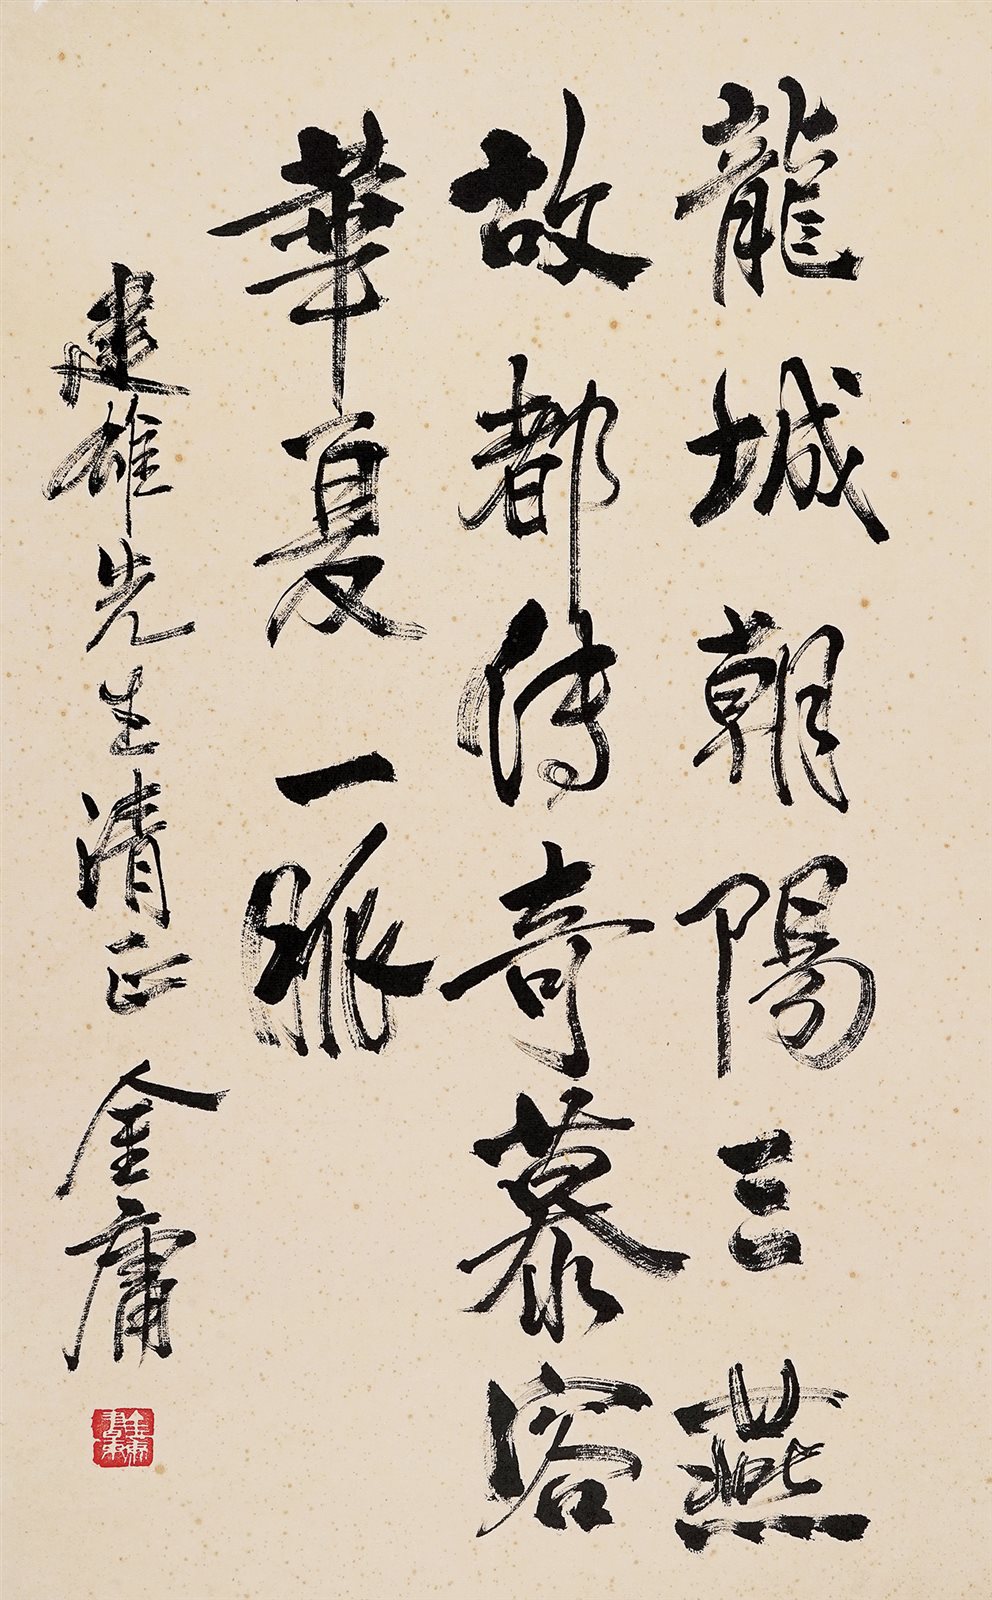 龍城朝陽三燕
故都傳奇慕容
華夏一脈
建雄先生清正 金庸
金庸書印